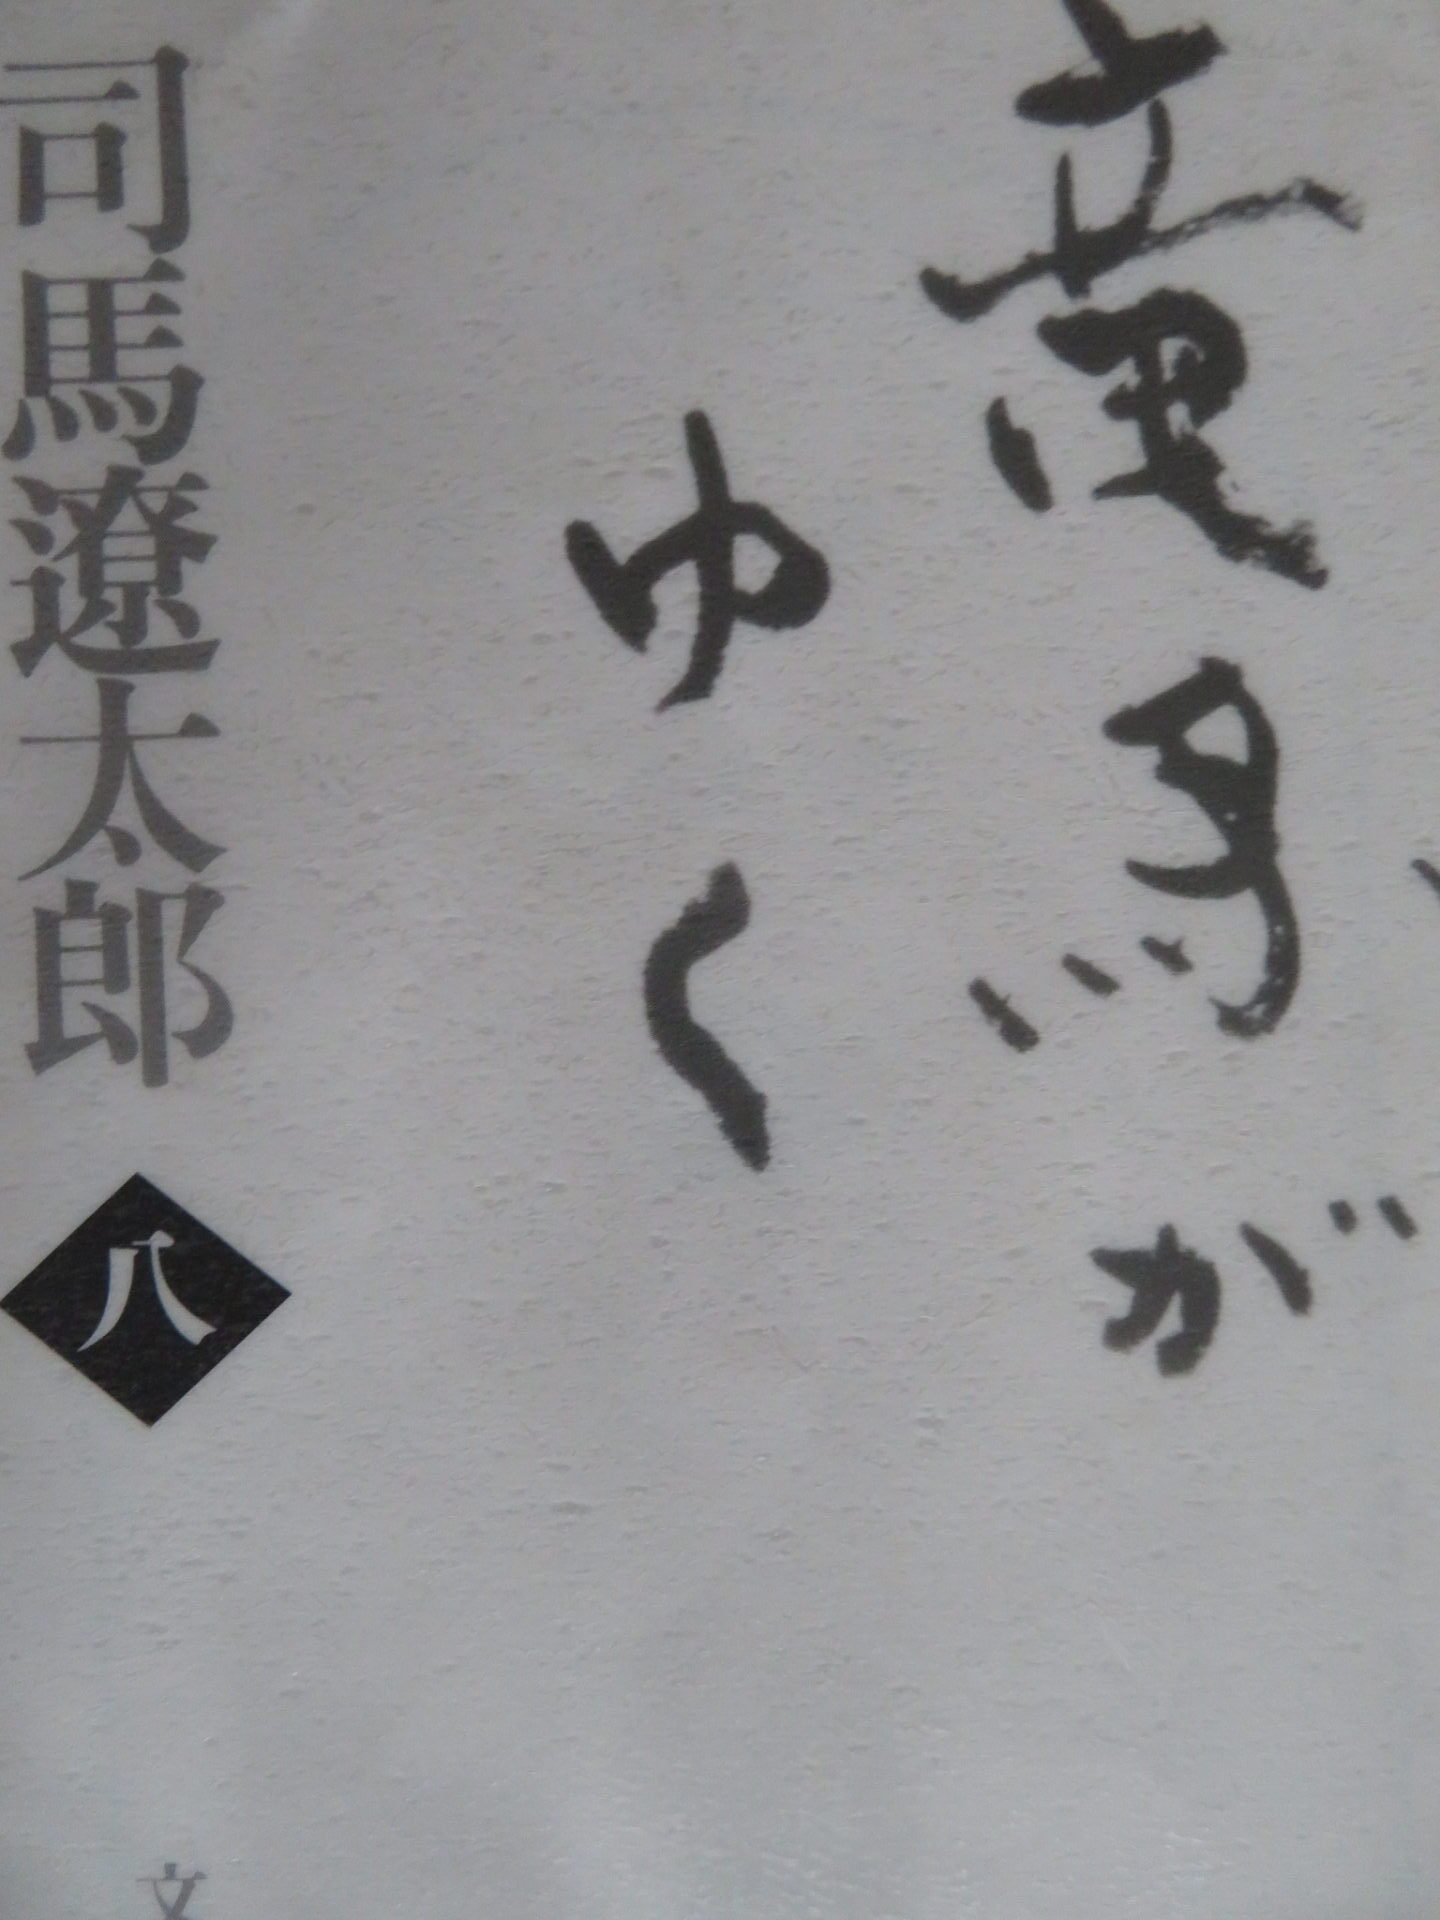 竜馬が
ゆく
司馬遼太郎
八
文